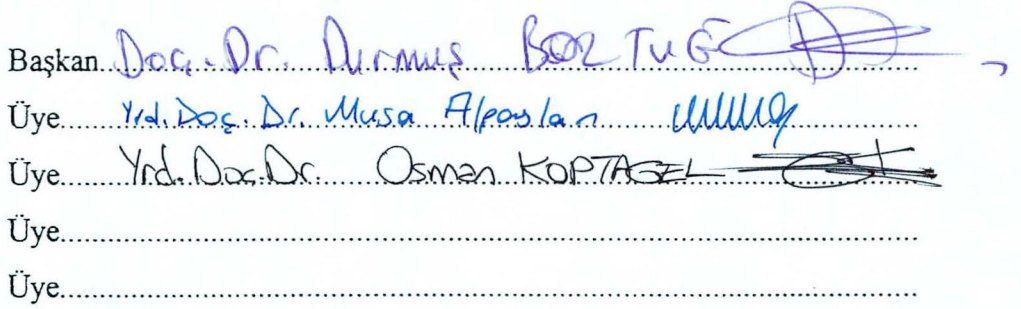 Başkan Doç. Dr. Durmuş BOZTUĞ
Üye Yrd. Doç. Dr. Musa Alpaslan
Üye Yrd. Doç. Dr. Osman KOPTAGEL
Üye
Üye